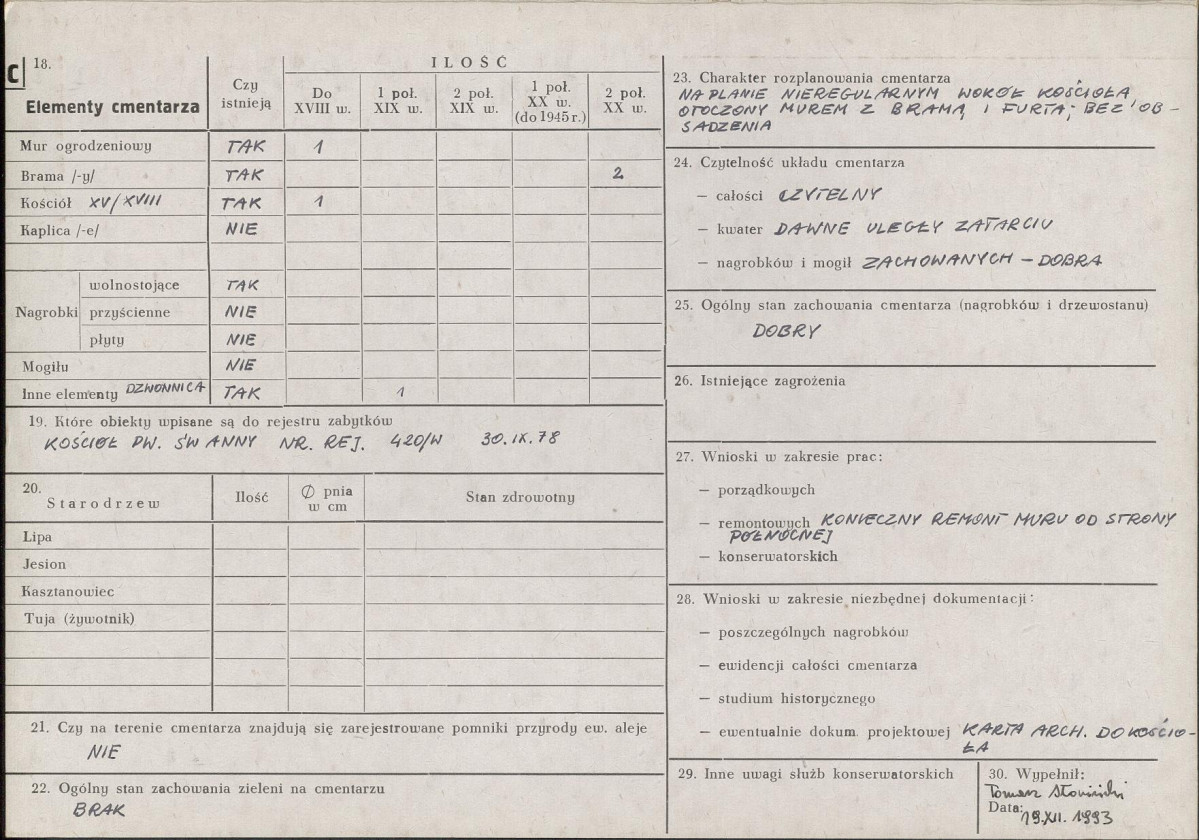 C
18.
Elementy cmentarza
Czy istnieją
ILOŚĆ
Do XVIII w.
1 poł. XIX w.
2 poł. XIX w.
1 poł. XX w. (do 1945 r.)
2 poł. XX w.
Mur ogrodzeniowy TAK 1
Brama /-y/ TAK 2
Kościół XV/XVIII TAK 1
Kaplica /-e/ NIE
Nagrobki
wolnostojące TAK
przyścienne NIE
płyty NIE
Mogiłu NIE
Inne elementy DZWONNICA TAK 1
19. Które obiekty wpisane są do rejestru zabytków
KOŚCIÓŁ PW. ŚW ANNY NR. REJ. 420/W 30.IX.78
20. Starodrzew
Ilość
Ø pnia w cm
Stan zdrowotny
Lipa
Jesion
Kasztanowiec
Tuja (żywotnik)
21. Czy na terenie cmentarza znajdują się zarejestrowane pomniki przyrody ew. aleje
NIE
22. Ogólny stan zachowania zieleni na cmentarzu
BRAK
23. Charakter rozplanowania cmentarza
NA PLANIE NIEREGULARNYM WOKÓŁ KOŚCIOŁA,
OTOCZONY MUREM Z BRAMĄ I FURTĄ; BEZ OB-
SADZENIA
24. Czytelność układu cmentarza
— całości CZYTELNY
— kwater DAWNE ULEGŁY ZATARCIU
— nagrobków i mogił ZACHOWANYCH – DOBRA
25. Ogólny stan zachowania cmentarza (nagrobków i drzewostanu)
DOBRY
26. Istniejące zagrożenia
27. Wnioski w zakresie prac:
— porządkowych
— remontowych KONIECZNY REMONT MURU OD STRONY
PÓŁNOCNEJ
— konserwatorskich
28. Wnioski w zakresie niezbędnej dokumentacji:
— poszczególnych nagrobków
— ewidencji całości cmentarza
— studium historycznego
— ewentualnie dokum. projektowej KARTA ARCH. DO KOŚCIO-
ŁA
29. Inne uwagi służb konserwatorskich
30. Wypełnił:
Tomasz
Data: 19.XII.1993